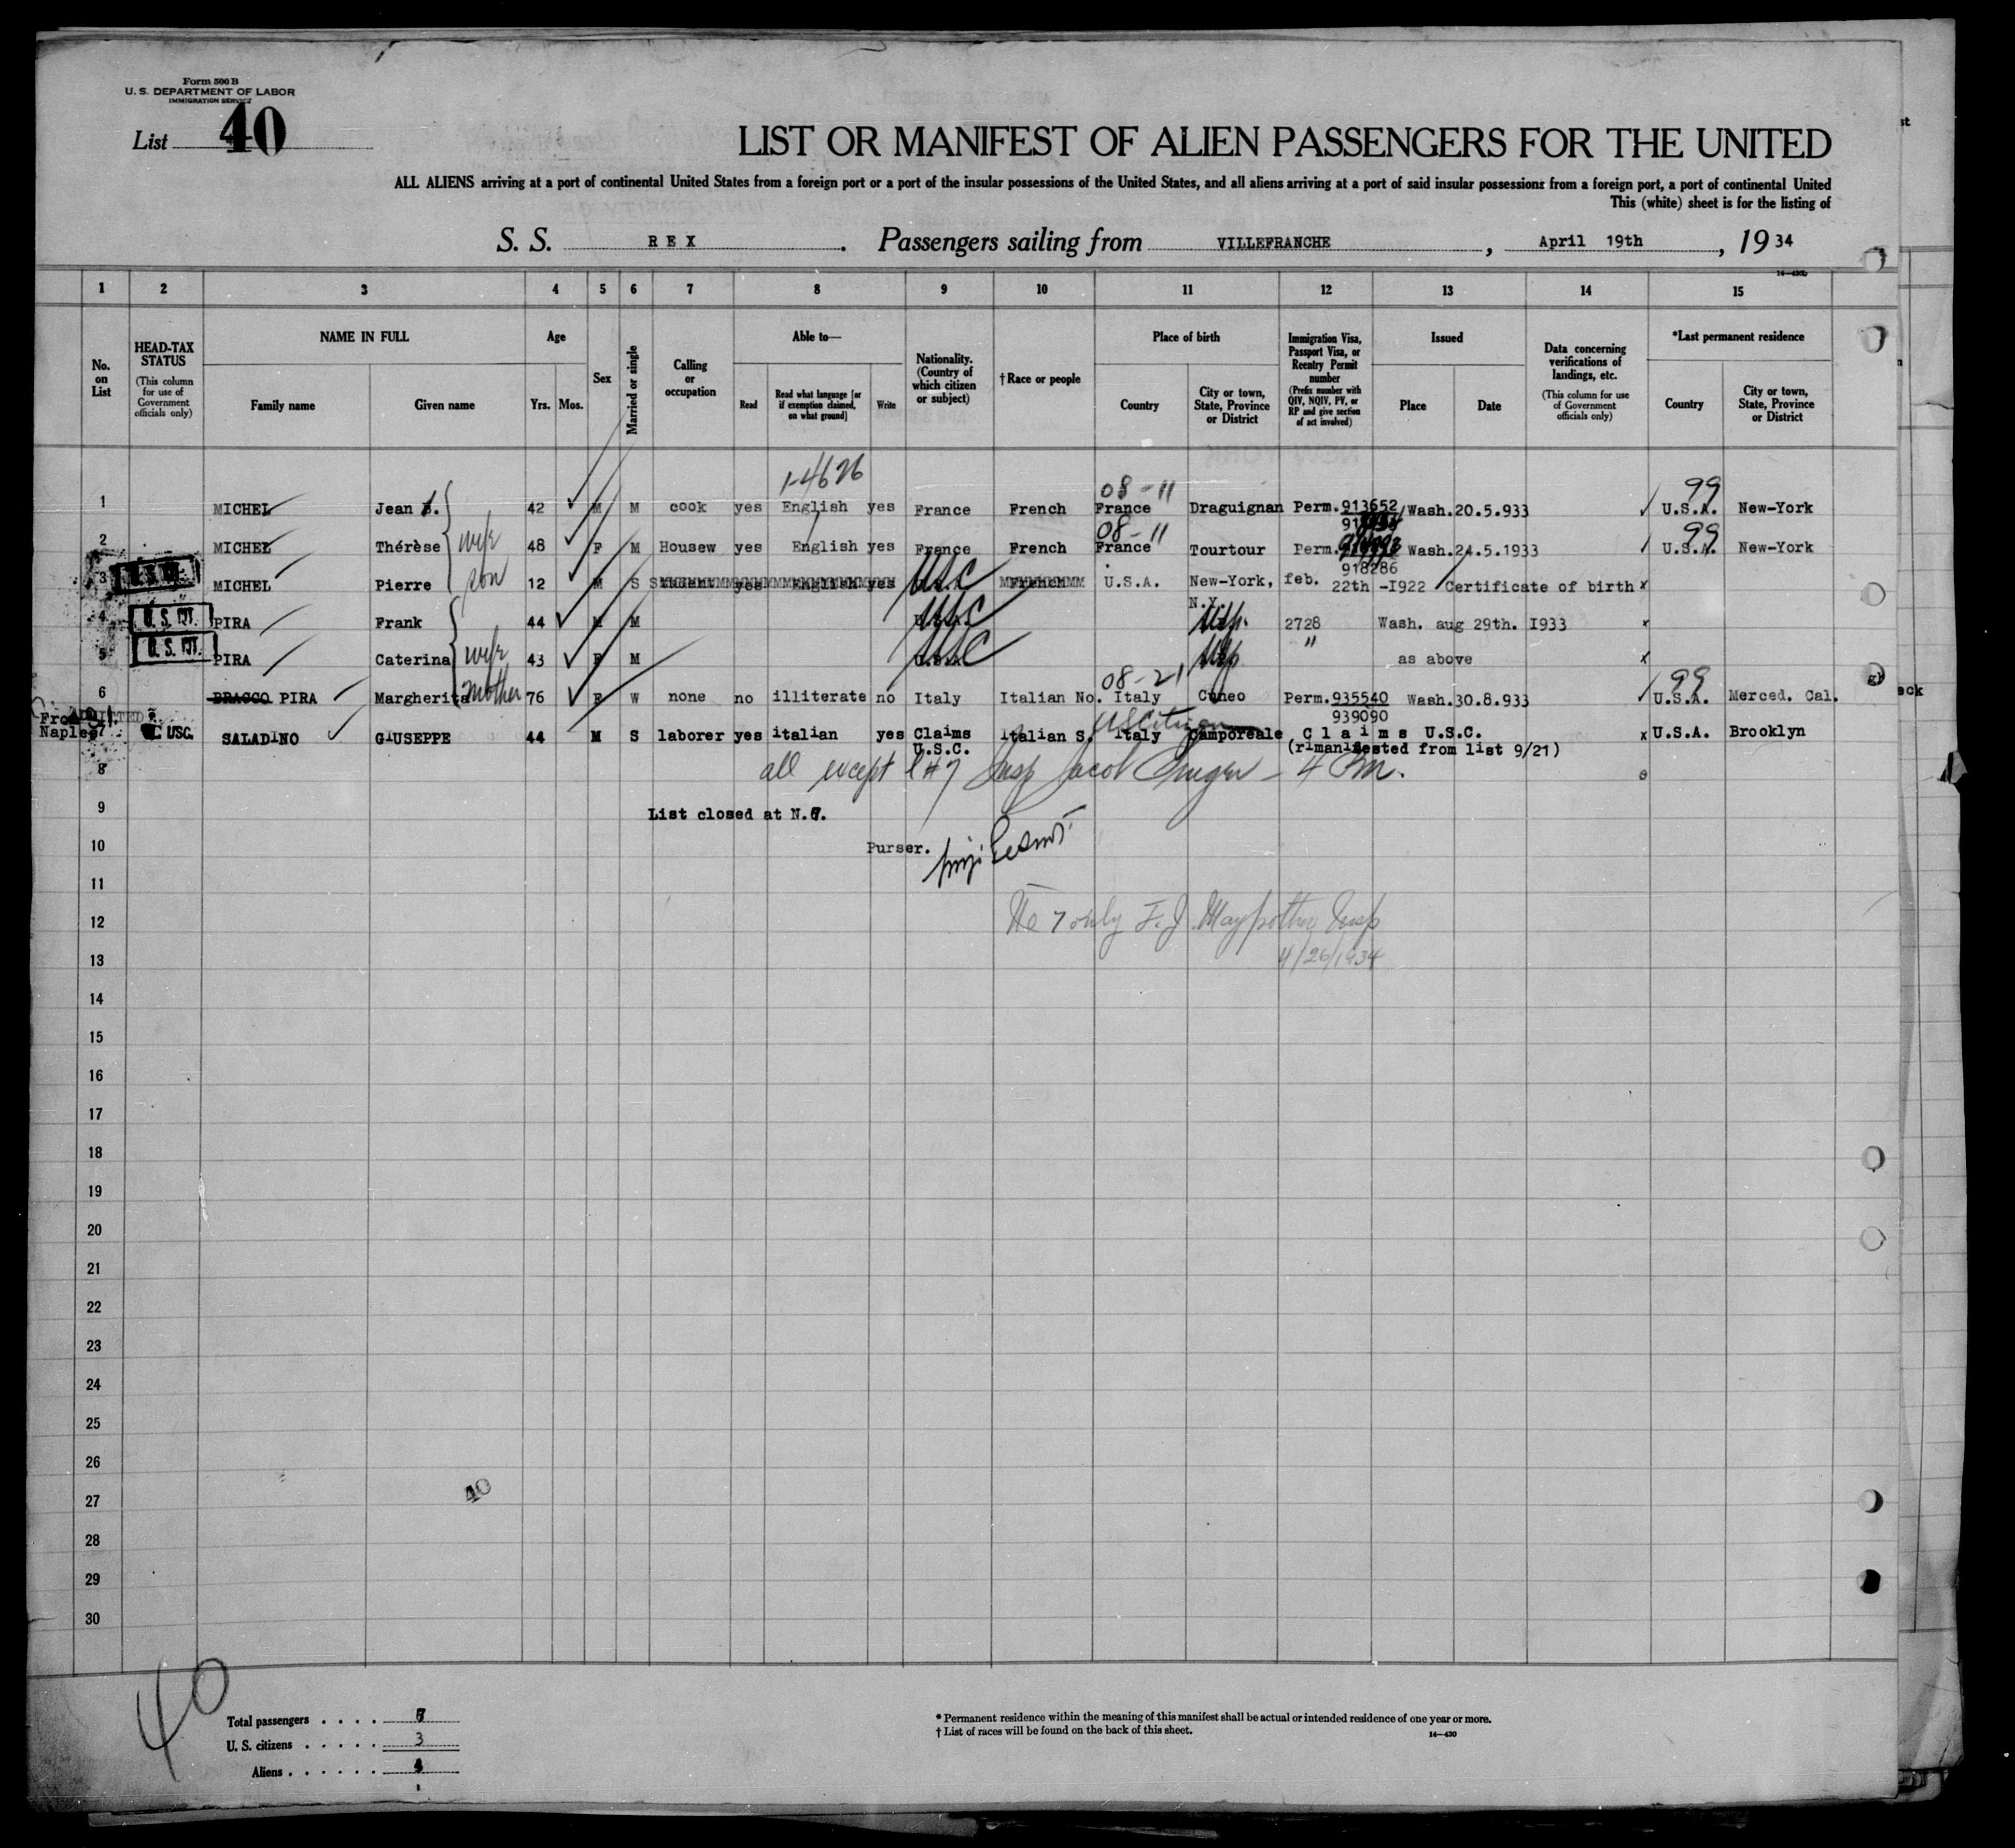 Form 500 B
U. S. DEPARTMENT OF LABOR
IMMIGRATION SERVICE
List 40
LIST OR MANIFEST OF ALIEN PASSENGERS FOR THE UNITED
ALL ALIENS arriving at a port of continental United States from a foreign port or a port of the insular possessions of the United States, and all aliens arriving at a port of said insular possessions from a foreign port, a port of continental United
This (white) sheet is for the listing of
S. S. REX. Passengers sailing from VILLEFRANCHE, April 19th, 1934
14—430b
1 2 3 4 5 6 7 8 9 10 11 12 13 14 15
No. on List
HEAD-TAX STATUS (This column for use of Government officials only)
NAME IN FULL Family name Given name
Age Yrs. Mos.
Sex
Married or single
Calling or occupation
Able to— Read Read what language [or if exemption claimed, on what ground] Write
Nationality. (Country of which citizen or subject)
†Race or people
Place of birth Country City or town, State, Province or District
Immigration Visa, Passport Visa, or Reentry Permit number (Prefix number with QIV, NQIV, PV, or RP and give section of act involved)
Issued Place Date
Data concerning verifications of landings, etc. (This column for use of Government officials only)
*Last permanent residence Country City or town, State, Province or District
1-4626 08-11 99
1 MICHEL Jean 42 M M cook yes English yes France French France Draguignan Perm. 913652 Wash. 20.5.933 U.S.A. New-York
08-11 99
2 MICHEL Thérèse wife 48 F M Housew yes English yes France French France Tourtour Perm. Wash. 24.5.1933 U.S.A. New-York
918286
3 MICHEL Pierre son 12 M S yes English yes USC French U.S.A. New-York, N.Y. feb. 22th -I922 Certificate of birth x
4 U.S. PIRA Frank 44 M M USC 2728 Wash. aug 29th. I933 x
5 U.S. PIRA Caterina wife 43 F M USC " as above x
08-21 99
6 BRACCO PIRA Margherita mother 76 F W none no illiterate no Italy Italian No. Italy Cuneo Perm. 935540 Wash. 30.8.933 U.S.A. Merced. Cal.
939090
From Naples
7 USC. SALADINO GIUSEPPE 44 M S laborer yes italian yes Claims U.S.C. Italian S. Italy US Citizen Camporeale Claims U.S.C. x U.S.A. Brooklyn
(rimanifested from list 9/21)
8 all except l#7 Insp Jacob 4 Pm.
9 List closed at N.
10 Purser.
11
12 7 only F. J. Insp
13 4/26/1934
14
15
16
17
18
19
20
21
22
23
24
25
26
27 40
28
29
30
40
Total passengers
U. S. citizens 3
Aliens
* Permanent residence within the meaning of this manifest shall be actual or intended residence of one year or more.
† List of races will be found on the back of this sheet.
14—430